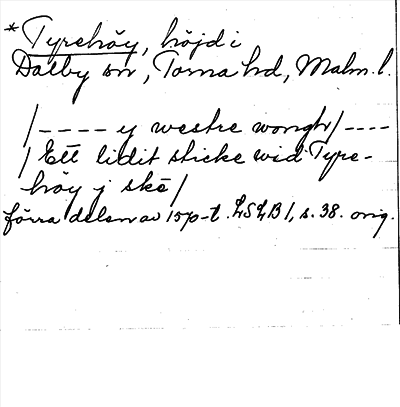 *Tyrehöy, höjd i
Dalby sn, Torna hd, Malm. l.
/---- y westre wongh/----
/Ett lidit sticke wid Tyre-
höy j skē/
förra delen av 1570-t. LSLB 1, s. 38. orig.